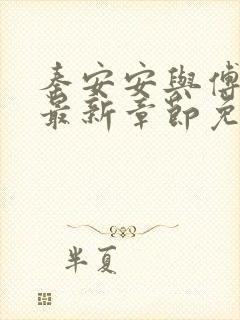 秦安安與傅
最新章節免
半夏